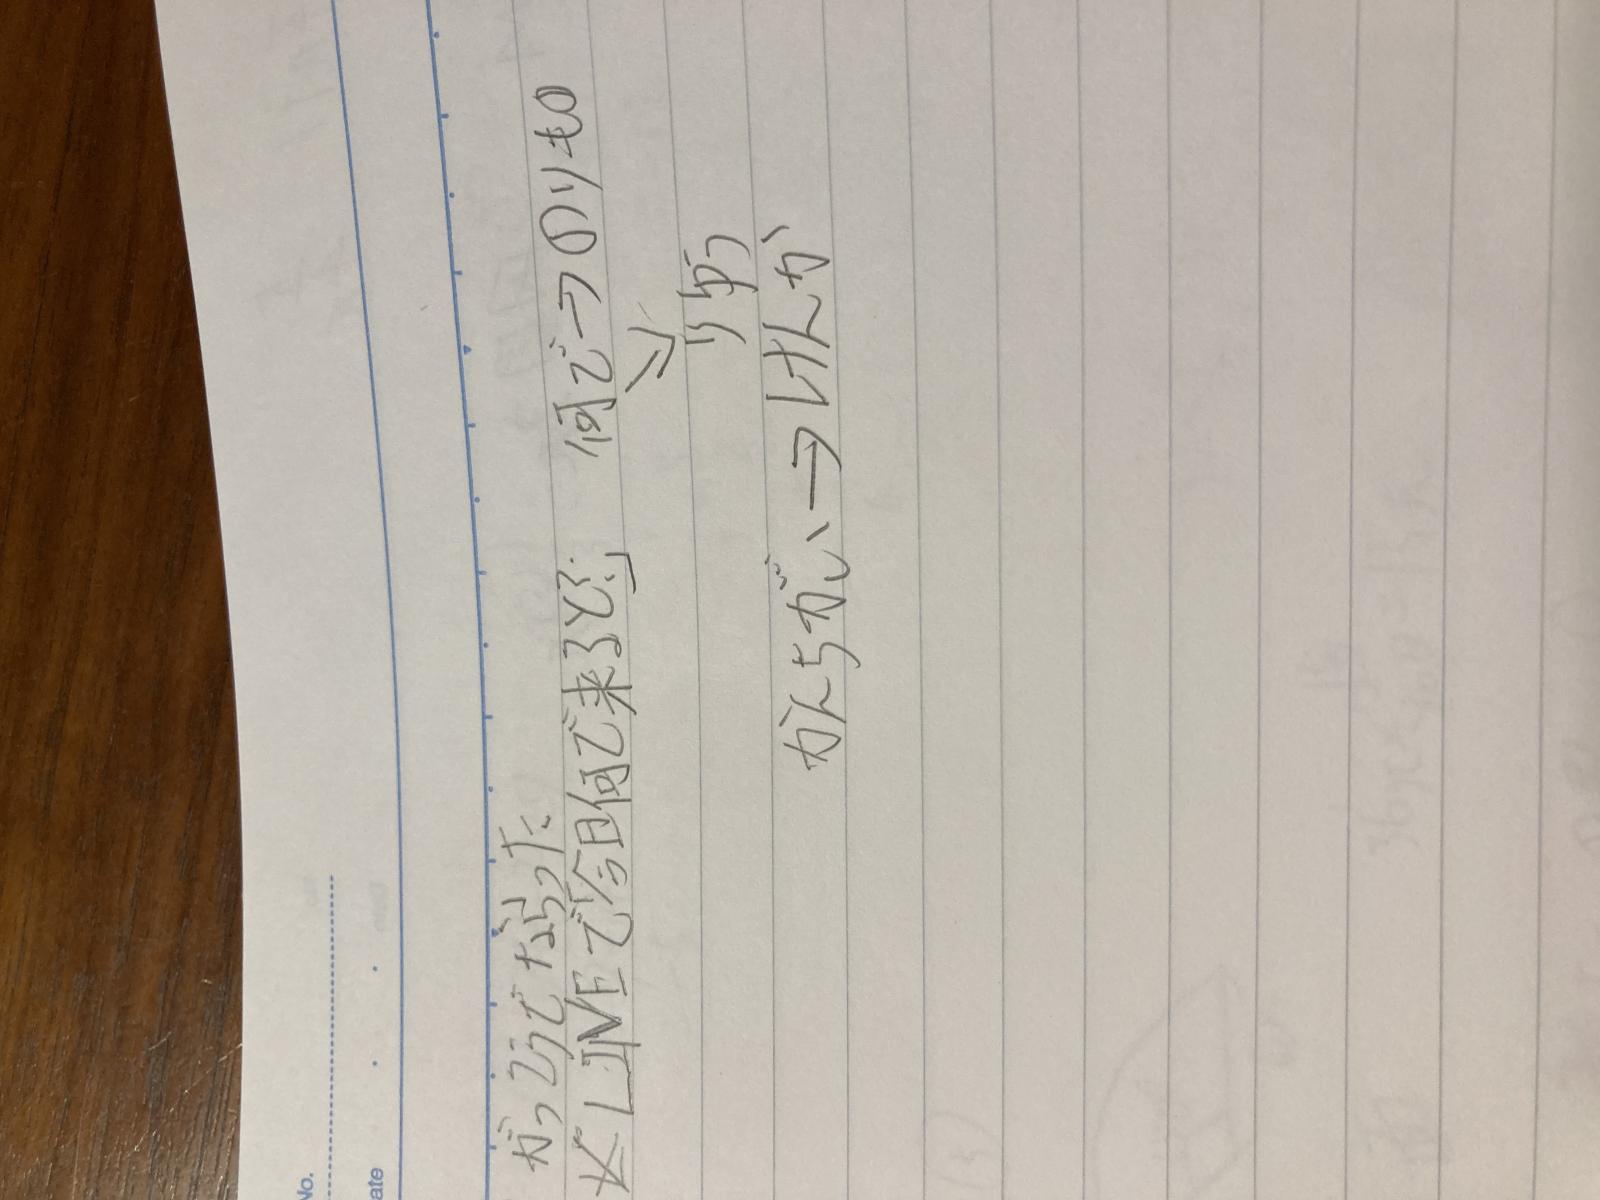 No.
ate
がっこうでならった
ペ LINEで今日何で来ると？」 何で→のりもの
↘
りゆう
かんちがい、→けんか